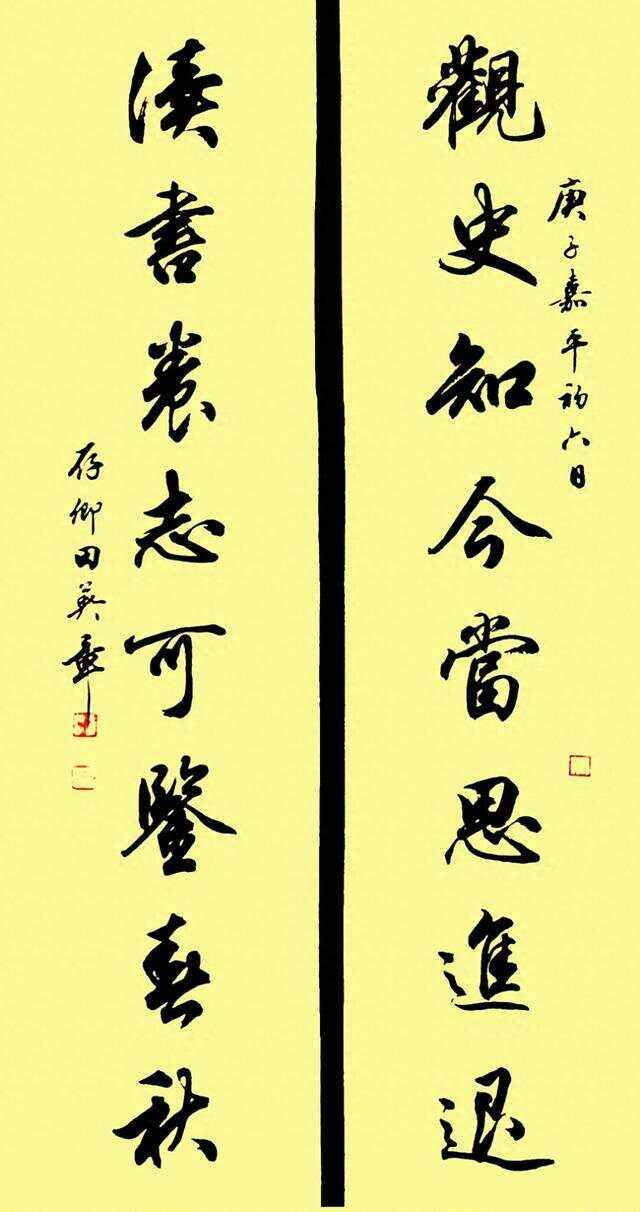 庚子嘉平初六日
觀史知今當思進退
讀書養志可鑒春秋
存卿田英章